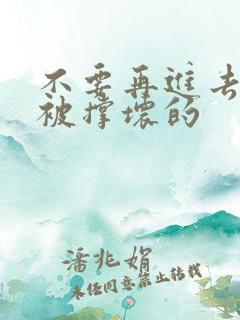 不要再进去
被撑壞的
潘兆娟
未经同意禁止转载